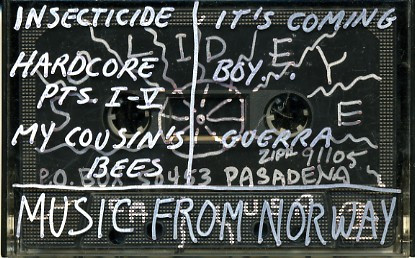 INSECTICIDE
HARDCORE
PTS. I-V
MY COUSIN'S
BEES
IT'S COMING
BOY...
GUERRA
ZIP# 91105
PASADENA
P.O. BOX
MUSIC FROM NORWAY